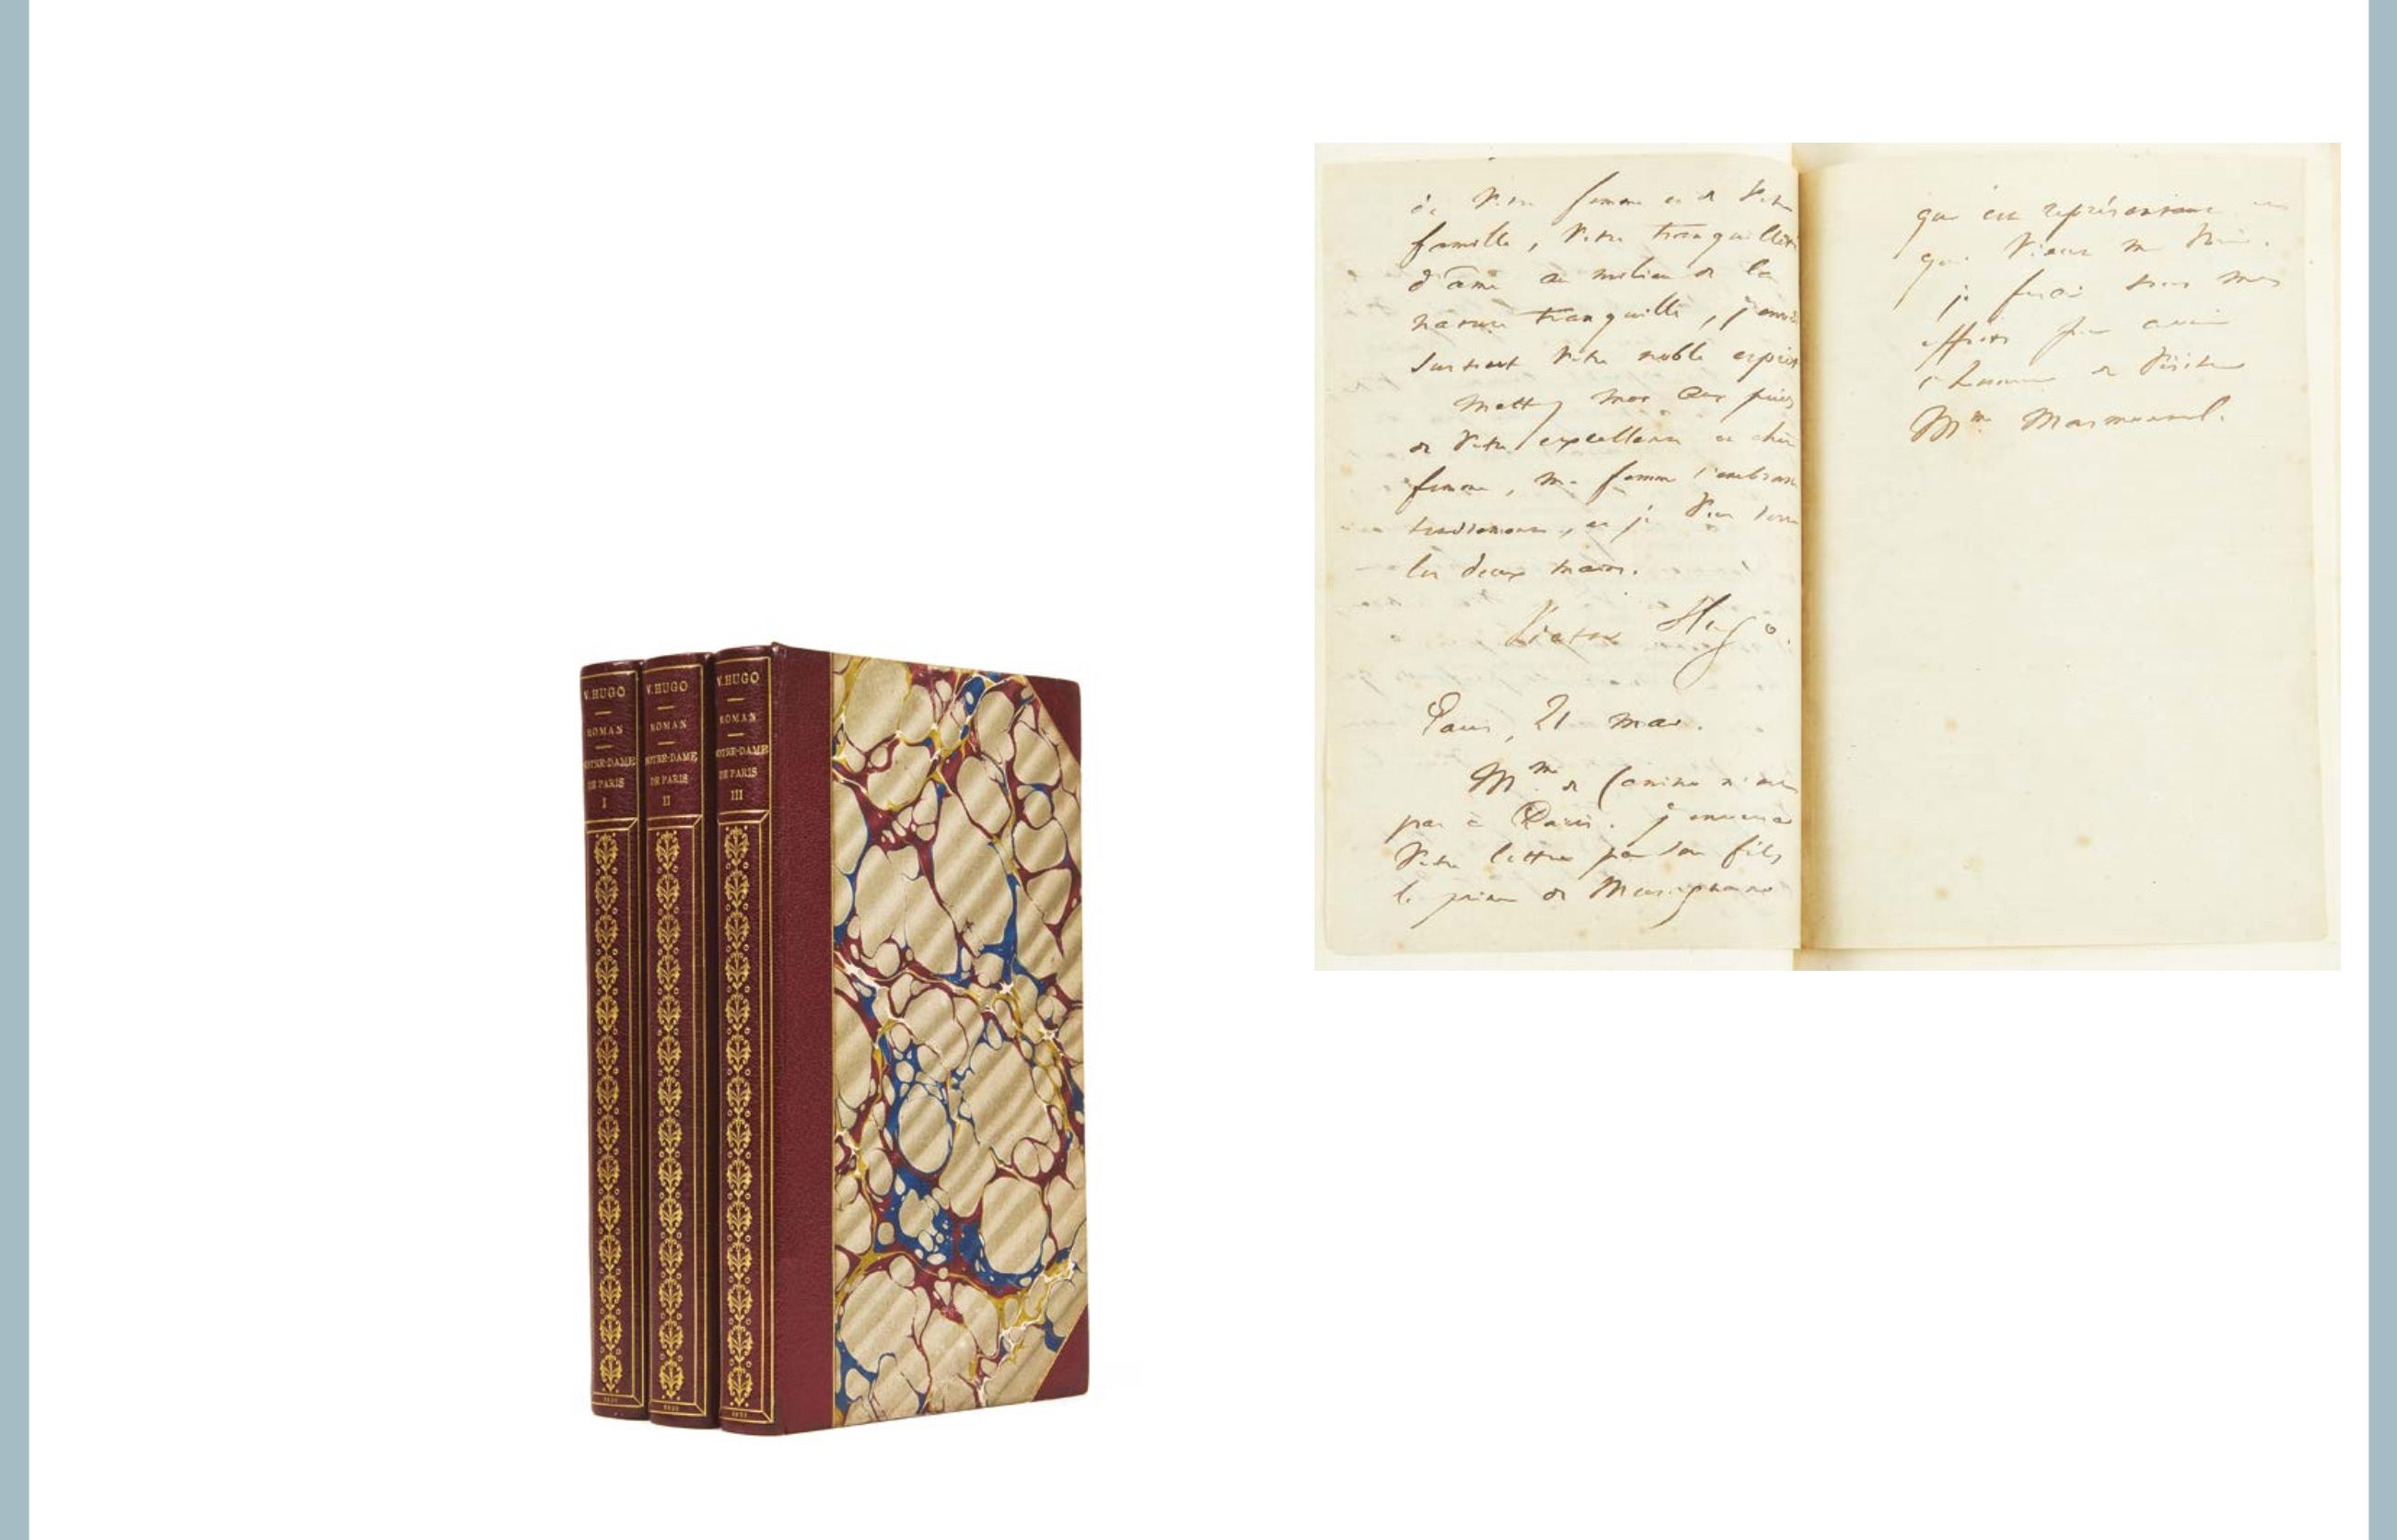 V. HUGO
ROMAN
NOTRE-DAME
DE PARIS
I
V. HUGO
ROMAN
NOTRE-DAME
DE PARIS
II
V. HUGO
ROMAN
NOTRE-DAME
DE PARIS
III
de votre femme et de votre
famille, votre tranquillité
d'âme au milieu de la
nature tranquille, j'envie
surtout votre noble esprit
Mettez moi aux pieds
de votre excellente et chère
femme, ma femme l'embrasse
tendrement, et je vous serre
les deux mains.
Victor Hugo.
Paris, 21 mai.
Mme de Canino n'est
pas à Paris. j'enverrai
votre lettre par son fils
le prince de Musignano
qui est représentant et
qui vient me voir.
je ferai tous mes
efforts pour avoir
l'honneur de visiter
Mme